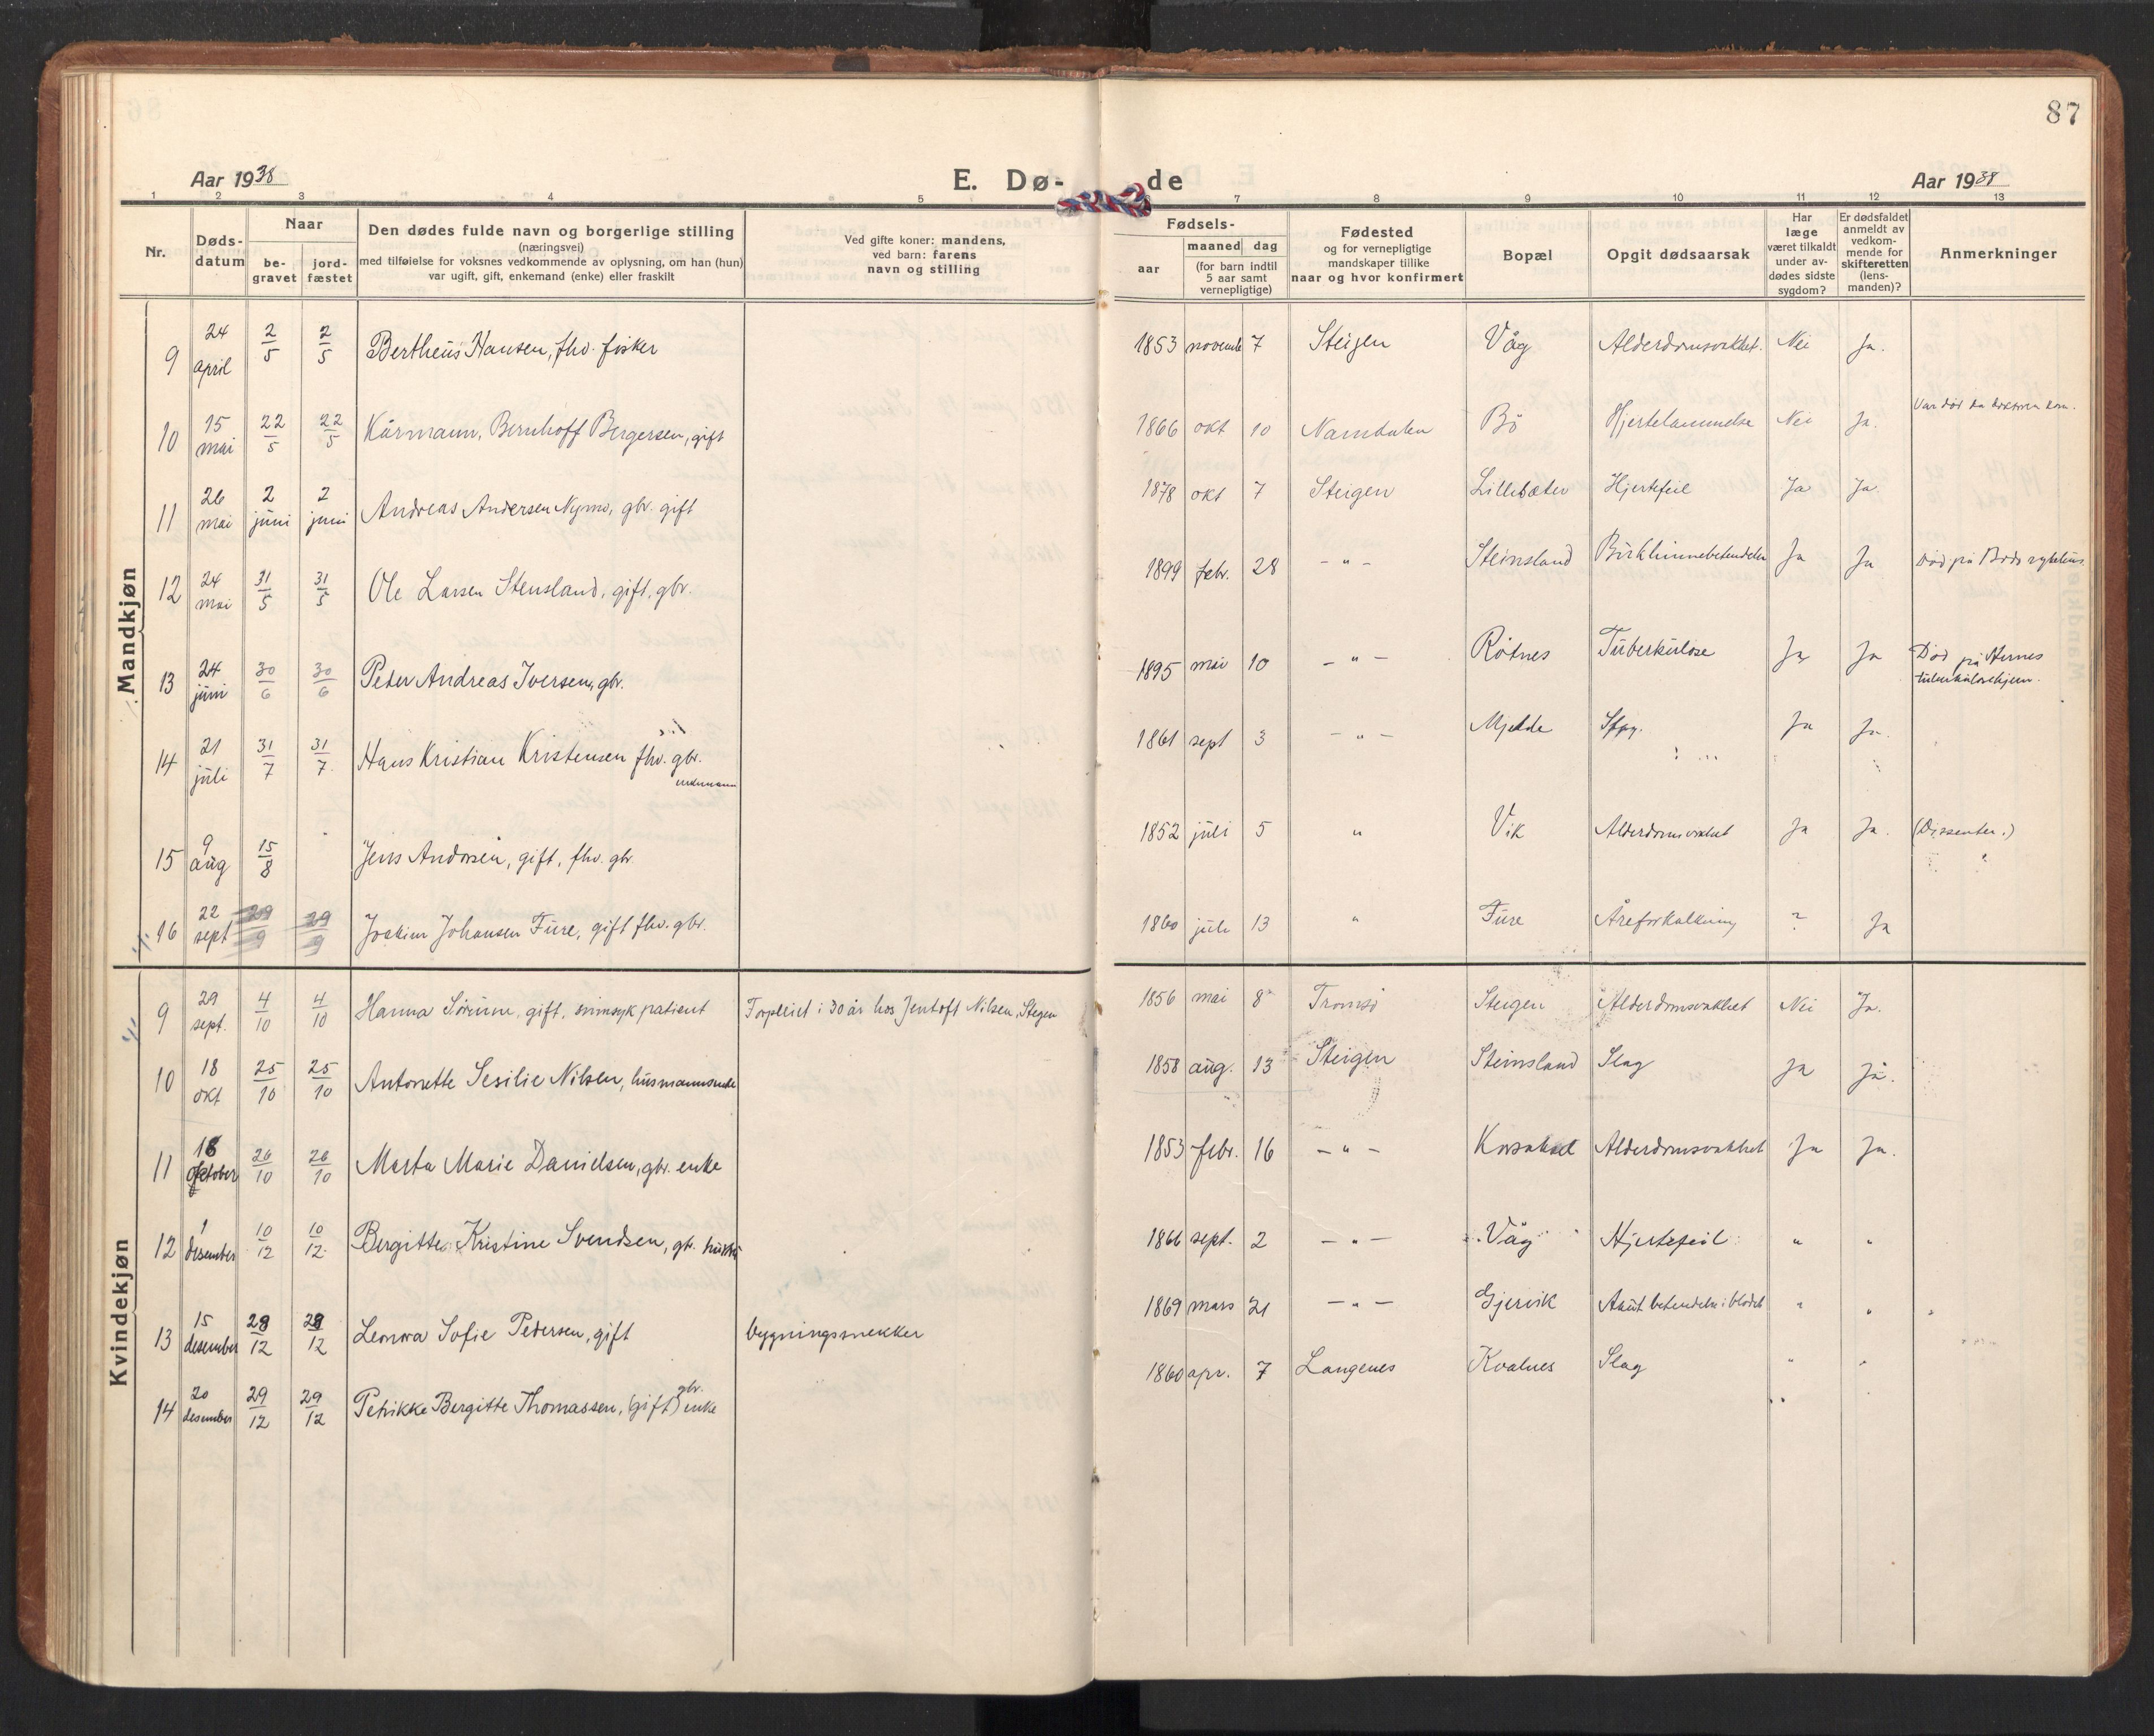 87
Aar 1938
E. Dø-
de
Aar 1938
1 2 3 4 5 7 8 9 10 11 12 13
Nr.
Døds-
datum
Naar
be-
gravet
jord-
fæstet
Den dødes fulde navn og borgerlige stilling
(næringsvei)
med tilføielse for voksnes vedkommende av oplysning, om han (hun)
var ugift, gift, enkemand (enke) eller fraskilt
Ved gifte koner: mandens,
ved barn: farens
navn og stilling
Fødsels-
aar
maaned dag
(for barn indtil
5 aar samt
vernepligtige)
Fødested
og for vernepligtige
mandskaper tillike
naar og hvor konfirmert
Bopæl
Opgit dødsaarsak
Har
læge
været tilkaldt
under av-
dødes sidste
sygdom?
Er dødsfaldet
anmeldt av
vedkom-
mende for
skifteretten
(lens-
manden)?
Anmerkninger
Mandkjøn
9 24 april 2/5 2/5 Bertheus Hansen, fhv. fisker 1853 novemb 7 Steigen Våg Alderdomssvakhet. Nei Ja.
10 15 mai 22/5 22/5 Kårmann, Bernhoff Bergersen, gift 1866 okt 10 Namdalen Bö Hjertelammelse Nei Ja. Var död da doktoren kom.
11 26 mai 2 juni 2 juni Andreas Andersen Nymo, gbr. gift 1878 okt 7 Steigen Lillesæter Hjertefeil Ja Ja.
12 24 mai 31/5 31/5 Ole Larsen Stensland, gift, gbr. 1899 febr. 28 - " - Steinsland Bukhinnebetendelse Ja Ja Död på Bodö sykehus
13 24 juni 30/6 30/6 Peder Andreas Iversen, gbr. 1895 mai 10 - " - Rötnes Tuberkulose Ja Ja Död på
tuberkulosehjem.
14 21 juli 31/7 31/7 Hans Kristian Kristensen fhv. gbr.
enkemann 1861 sept 3 - " - Mjelde Ja Ja.
15 9 aug 15/8 Jens Andersen, gift, fhv. gbr. 1852 juli 5 " Vik Alderdomssvakhet Ja Ja. (Dissenter.)
16 22 sept 29/9 29/9 Joakim Johansen Fure, gift fhv. gbr. 1860 juli 13 " Fure Åreforkalkning ? Ja
Kvindekjøn
9 29 sept. 4/10 4/10 Hanna Sörine, gift, sinnsyk patient Forpleiet i 30 år hos Jentoft Nilsen, Stegen 1856 mai 8 Tromsö Steigen Alderdomssvakhet Nei Ja.
10 18 okt 25/10 25/10 Antonette Sesilie Nilsen, husmannsenke 1858 aug. 13 Steigen Steinsland Slag Ja Ja.
11 18 oktober 26/10 26/10 Marta Marie Danielsen, gbr. enke 1853 febr. 16 - " - Alderdomssvakhet Ja Ja.
12 1 desember 10/12 10/12 Bergitte Kristine Svendsen, gb. 1866 sept. 2 - " - Våg Hjertefeil " "
13 15 desember 28/12 28/12 Leonora Sofie Pedersen, gift bygningssnekker 1869 mars 21 - " - Gjervik Akut betendelse i blodet " " "
14 20 desember 29/12 29/12 Petrikke Bergitte Thomassen, (gift) gbr. enke 1860 apr. 7 Langenes Kvalnes Slag " "